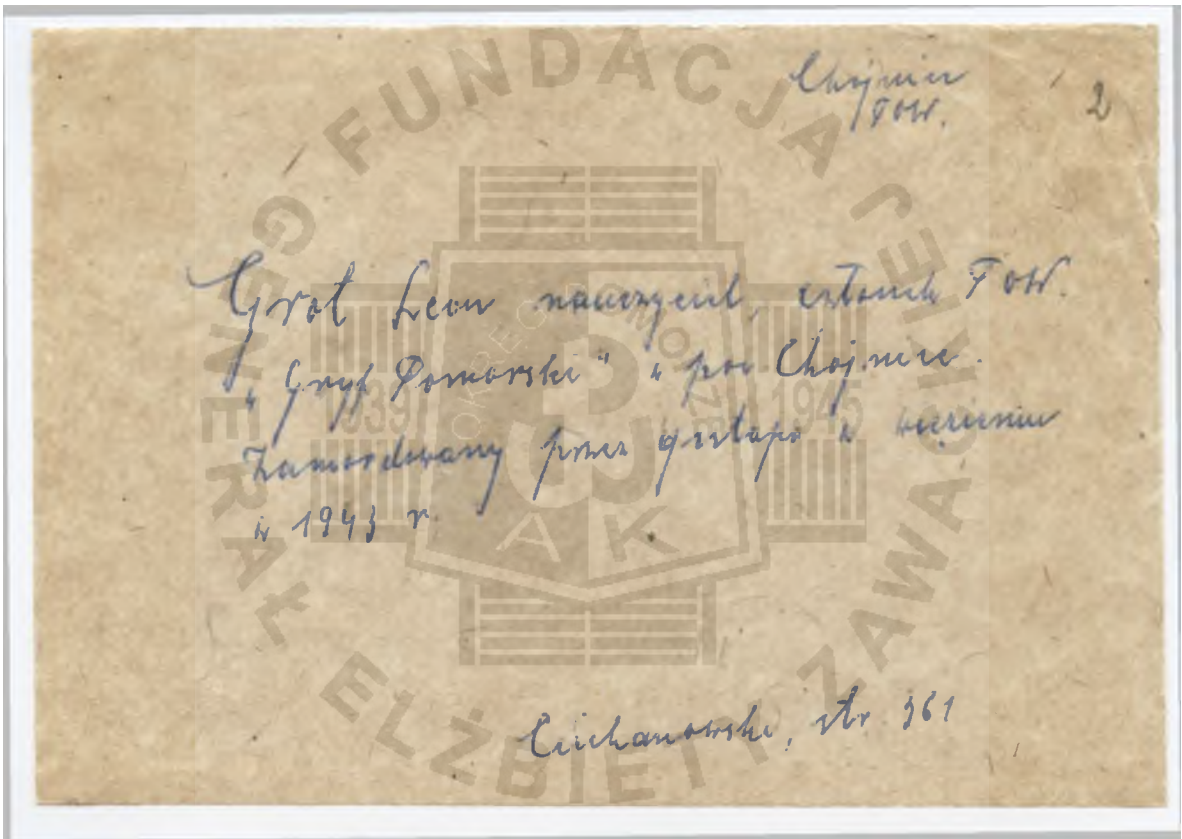 Chojnice
TOW.
2
Grot Leon nauczyciel, członek TOW.
"Gryf Pomorski" w pow Chojnice.
Zamordowany przez gestapo w więzieniu
w 1943 r.
Ciechanowski, str 361
FUNDACJA GENERAŁ ELŻBIETY ZAWACKIEJ
OKRĘG POMORZE
1939 1945
AK